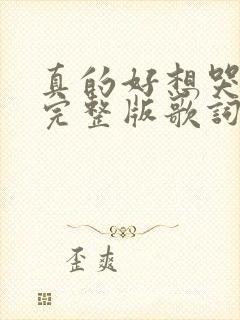 真的好想哭
完整版歌詞
歪爽